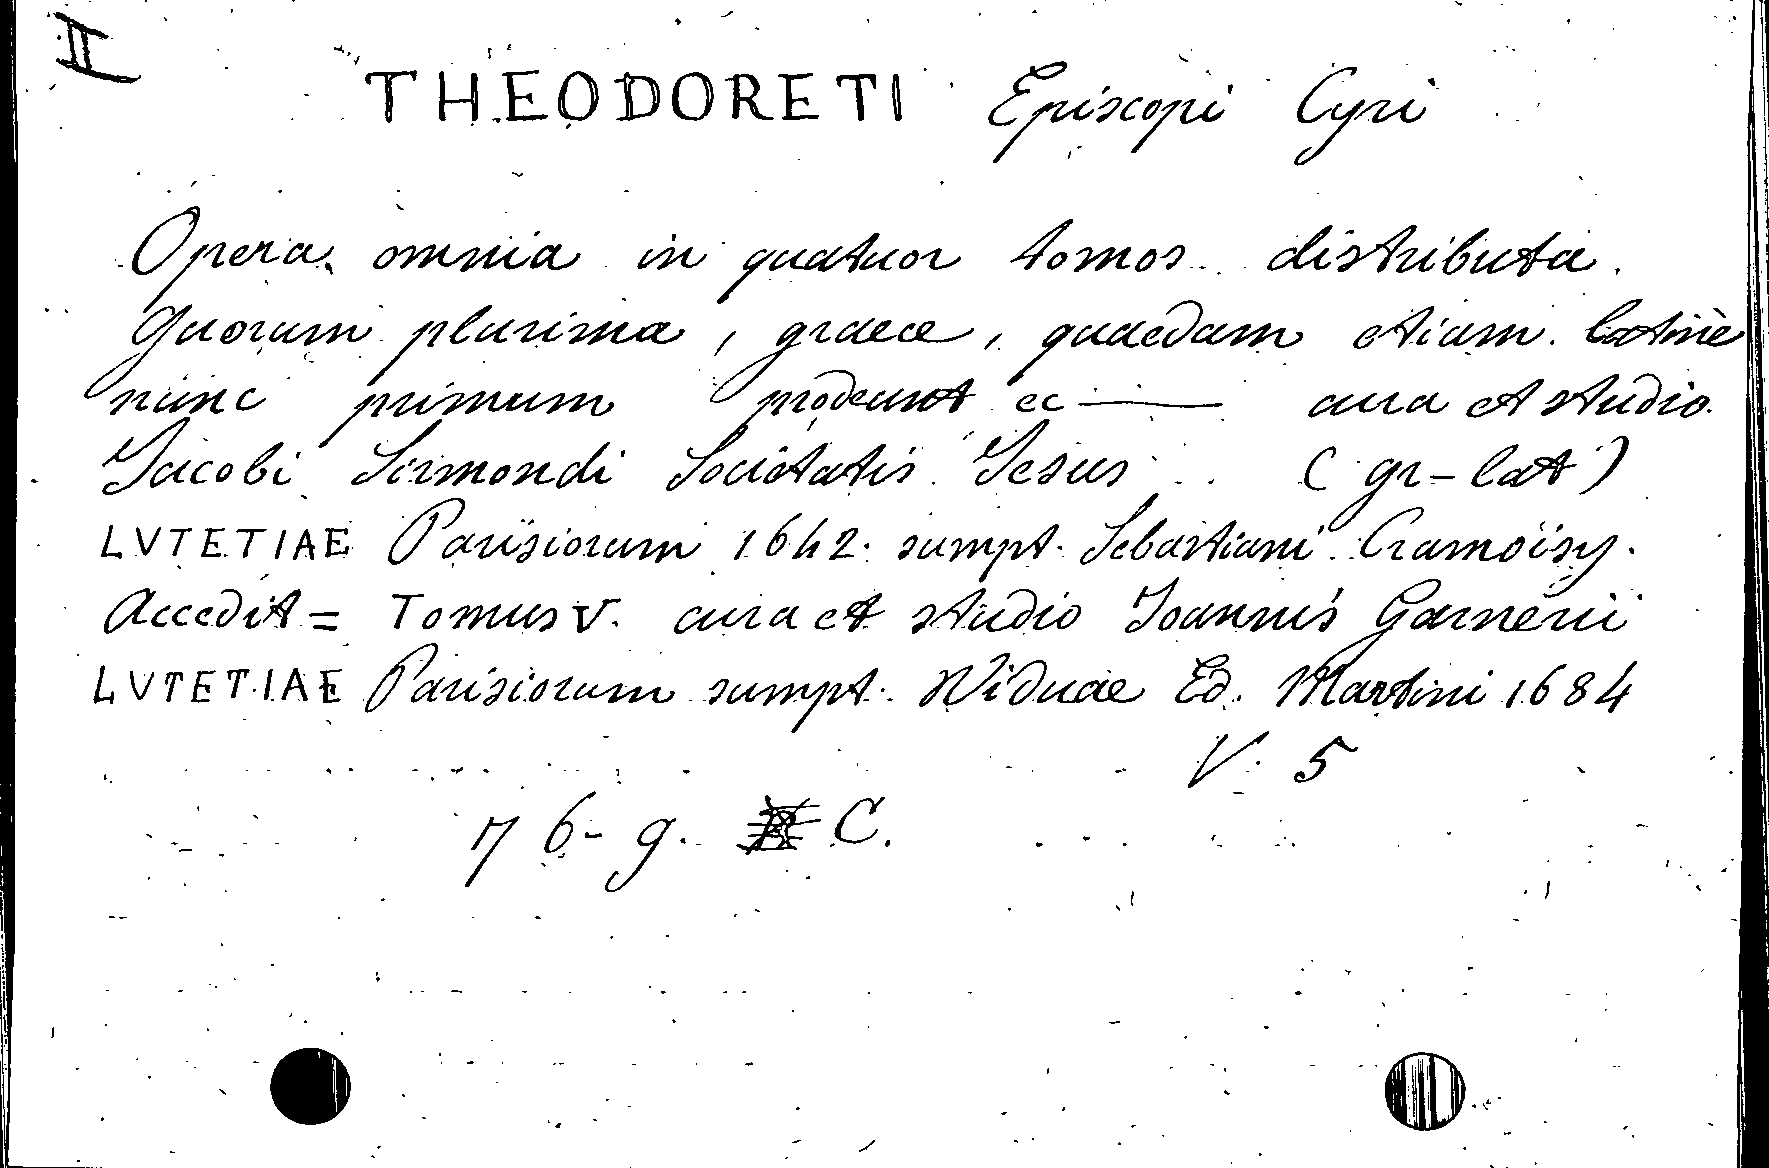 II
THEODORETI Episcopi Cyri
Opera omnia in quatuor tomos distributa.
Quorum plurima, graece, quaedam etiam latinè
nunc primum prodeunt ec — cura et studio
Jacobi Sirmondi Societatis Jesus (gr-lat)
LVTETIAE Parisiorum 1642. sumpt. Sebastiani Cramoisy.
Accedit = Tomus V. cura et studio Joannis Garnerii
LVTETIAE Parisiorum sumpt. Viduae Ed. Martini 1684
V. 5
76-g. C.